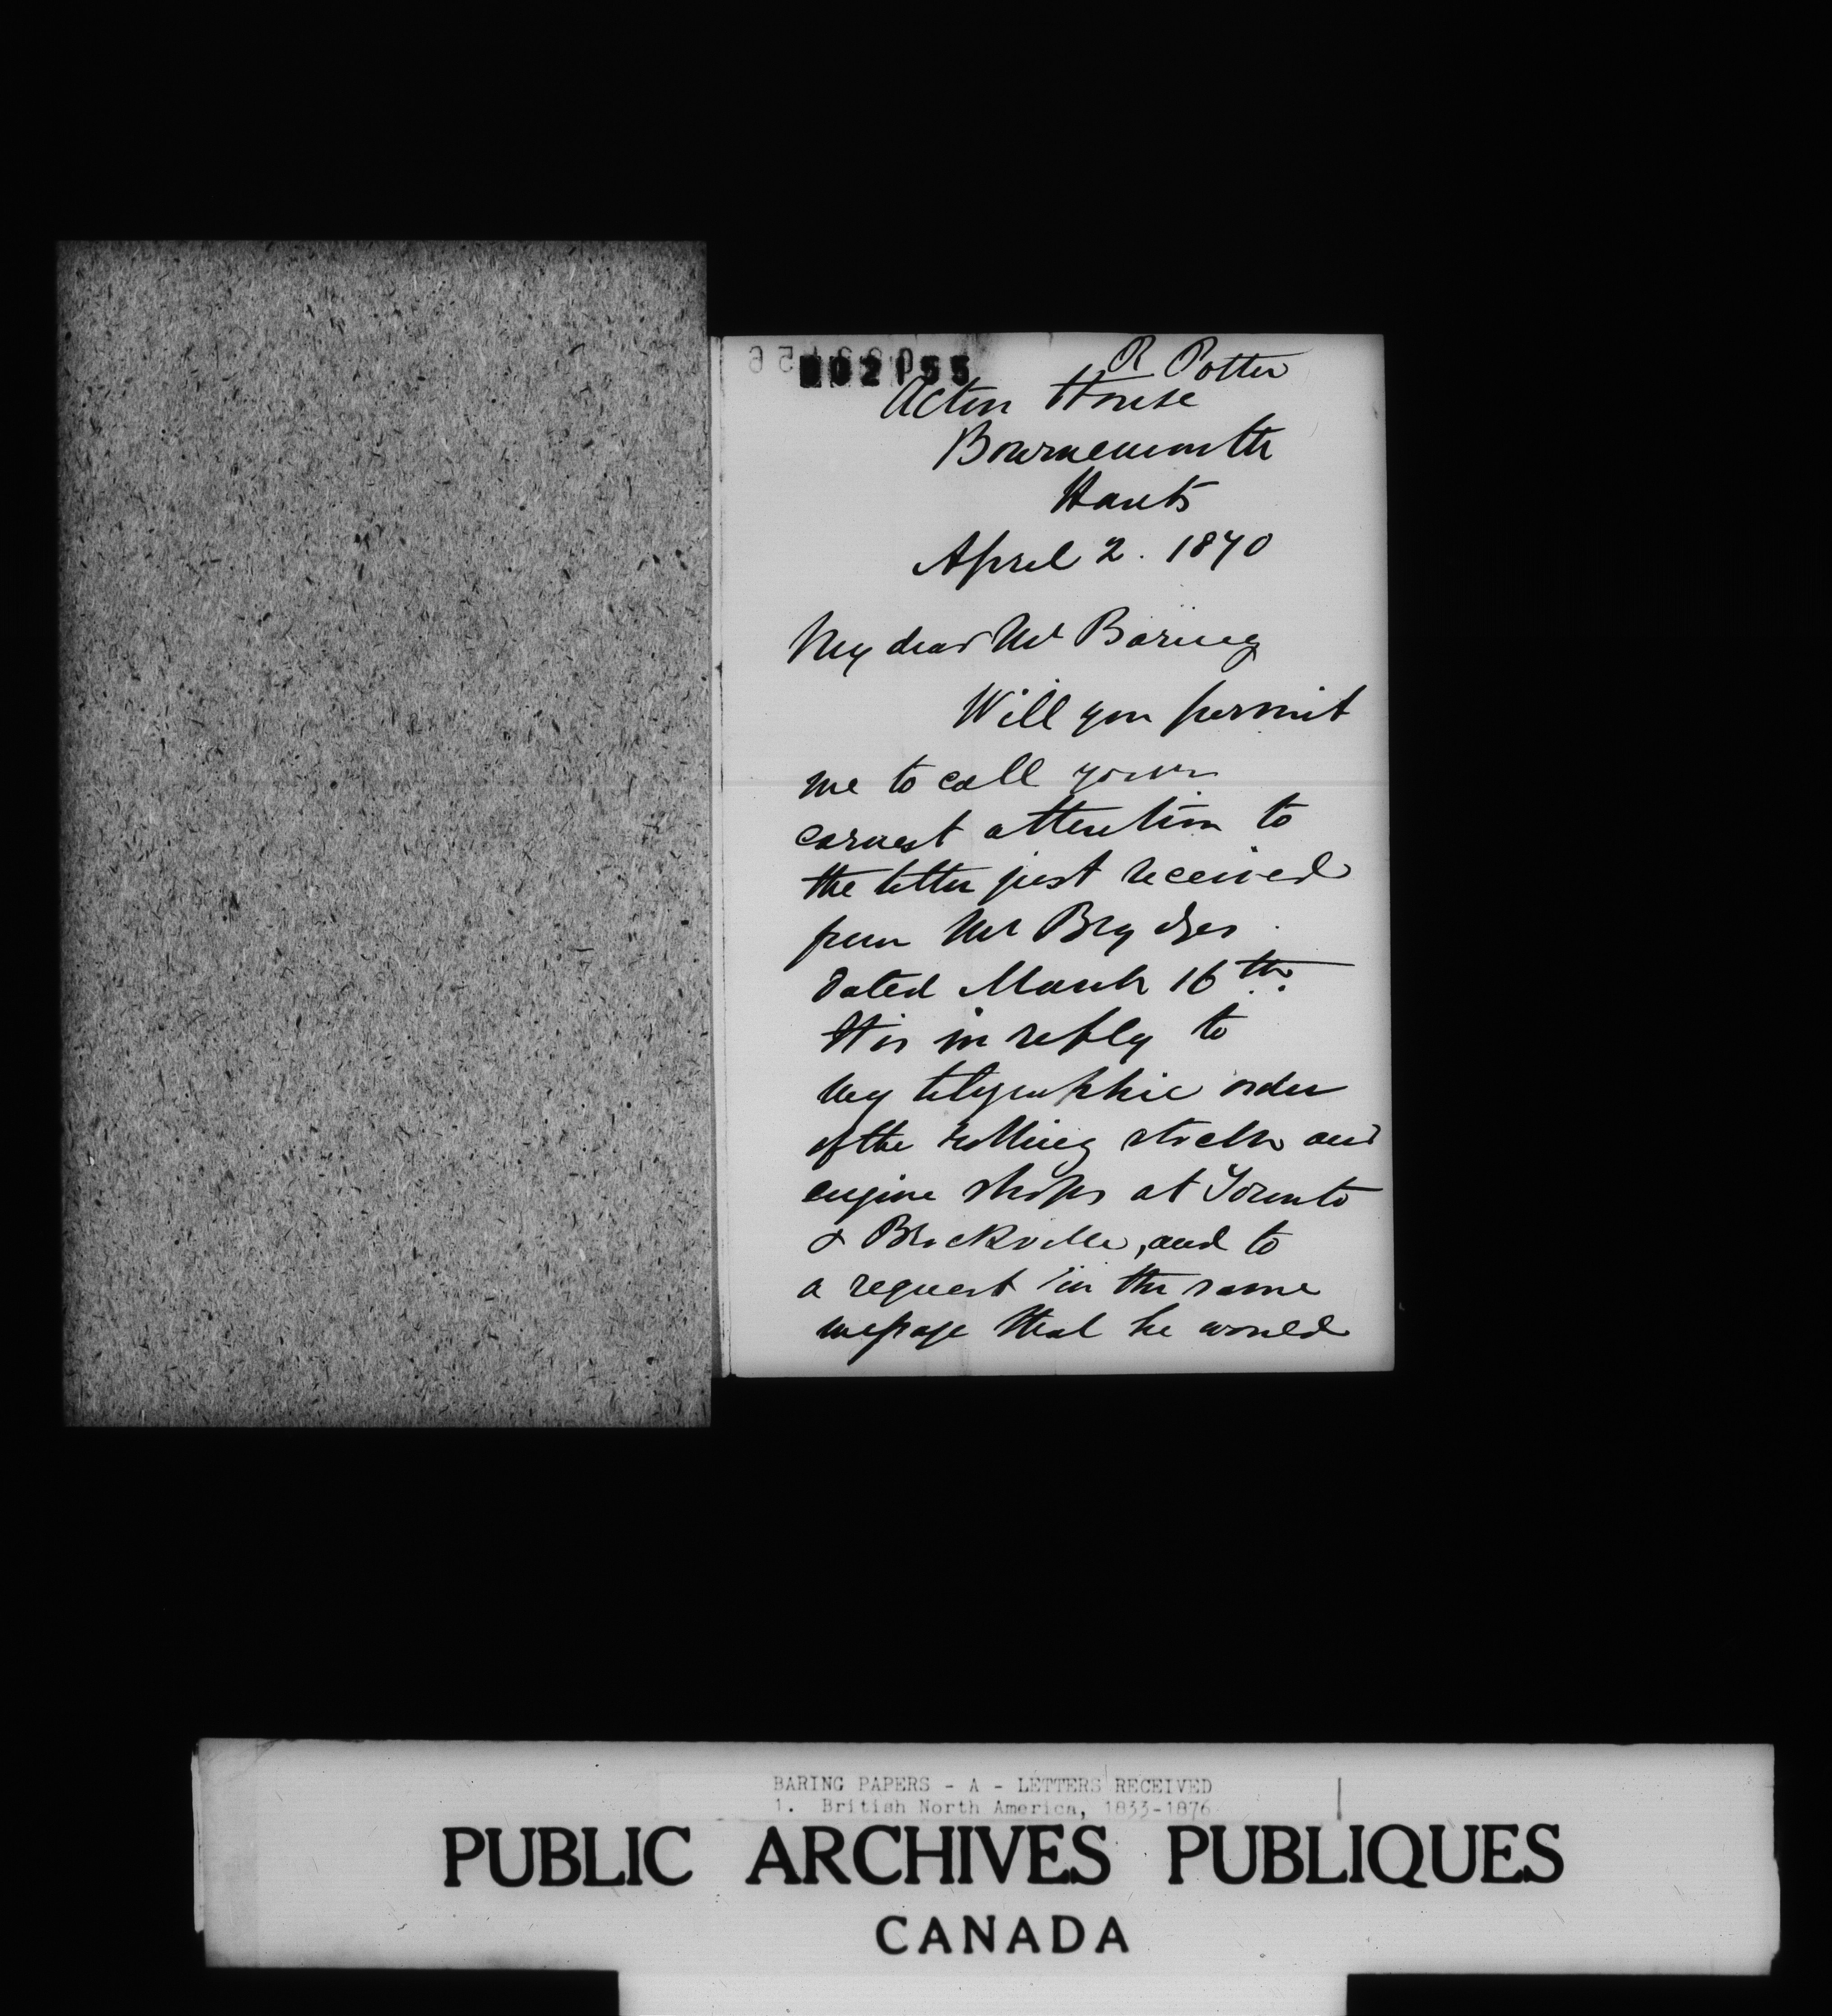 002155
R Potter
Acton House
Bournemouth
Hants
April 2. 1870
My dear Mr Baring
Will you permit
me to call your
earnest attention to
the letter just received
from Mr Brydges
dated March 16th.
It is in reply to
my telegraphic order
of the rolling stock and
engine shops at Toronto
& Brockville, and to
a request in the same
message that he would
BARING PAPERS - A - LETTERS RECEIVED
1. British North America, 1833-1876
PUBLIC ARCHIVES PUBLIQUES
CANADA